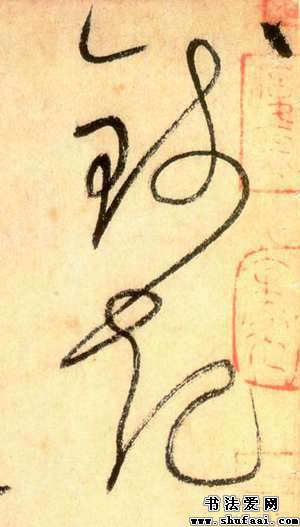 錢起
书法爱网
www.shufaai.com